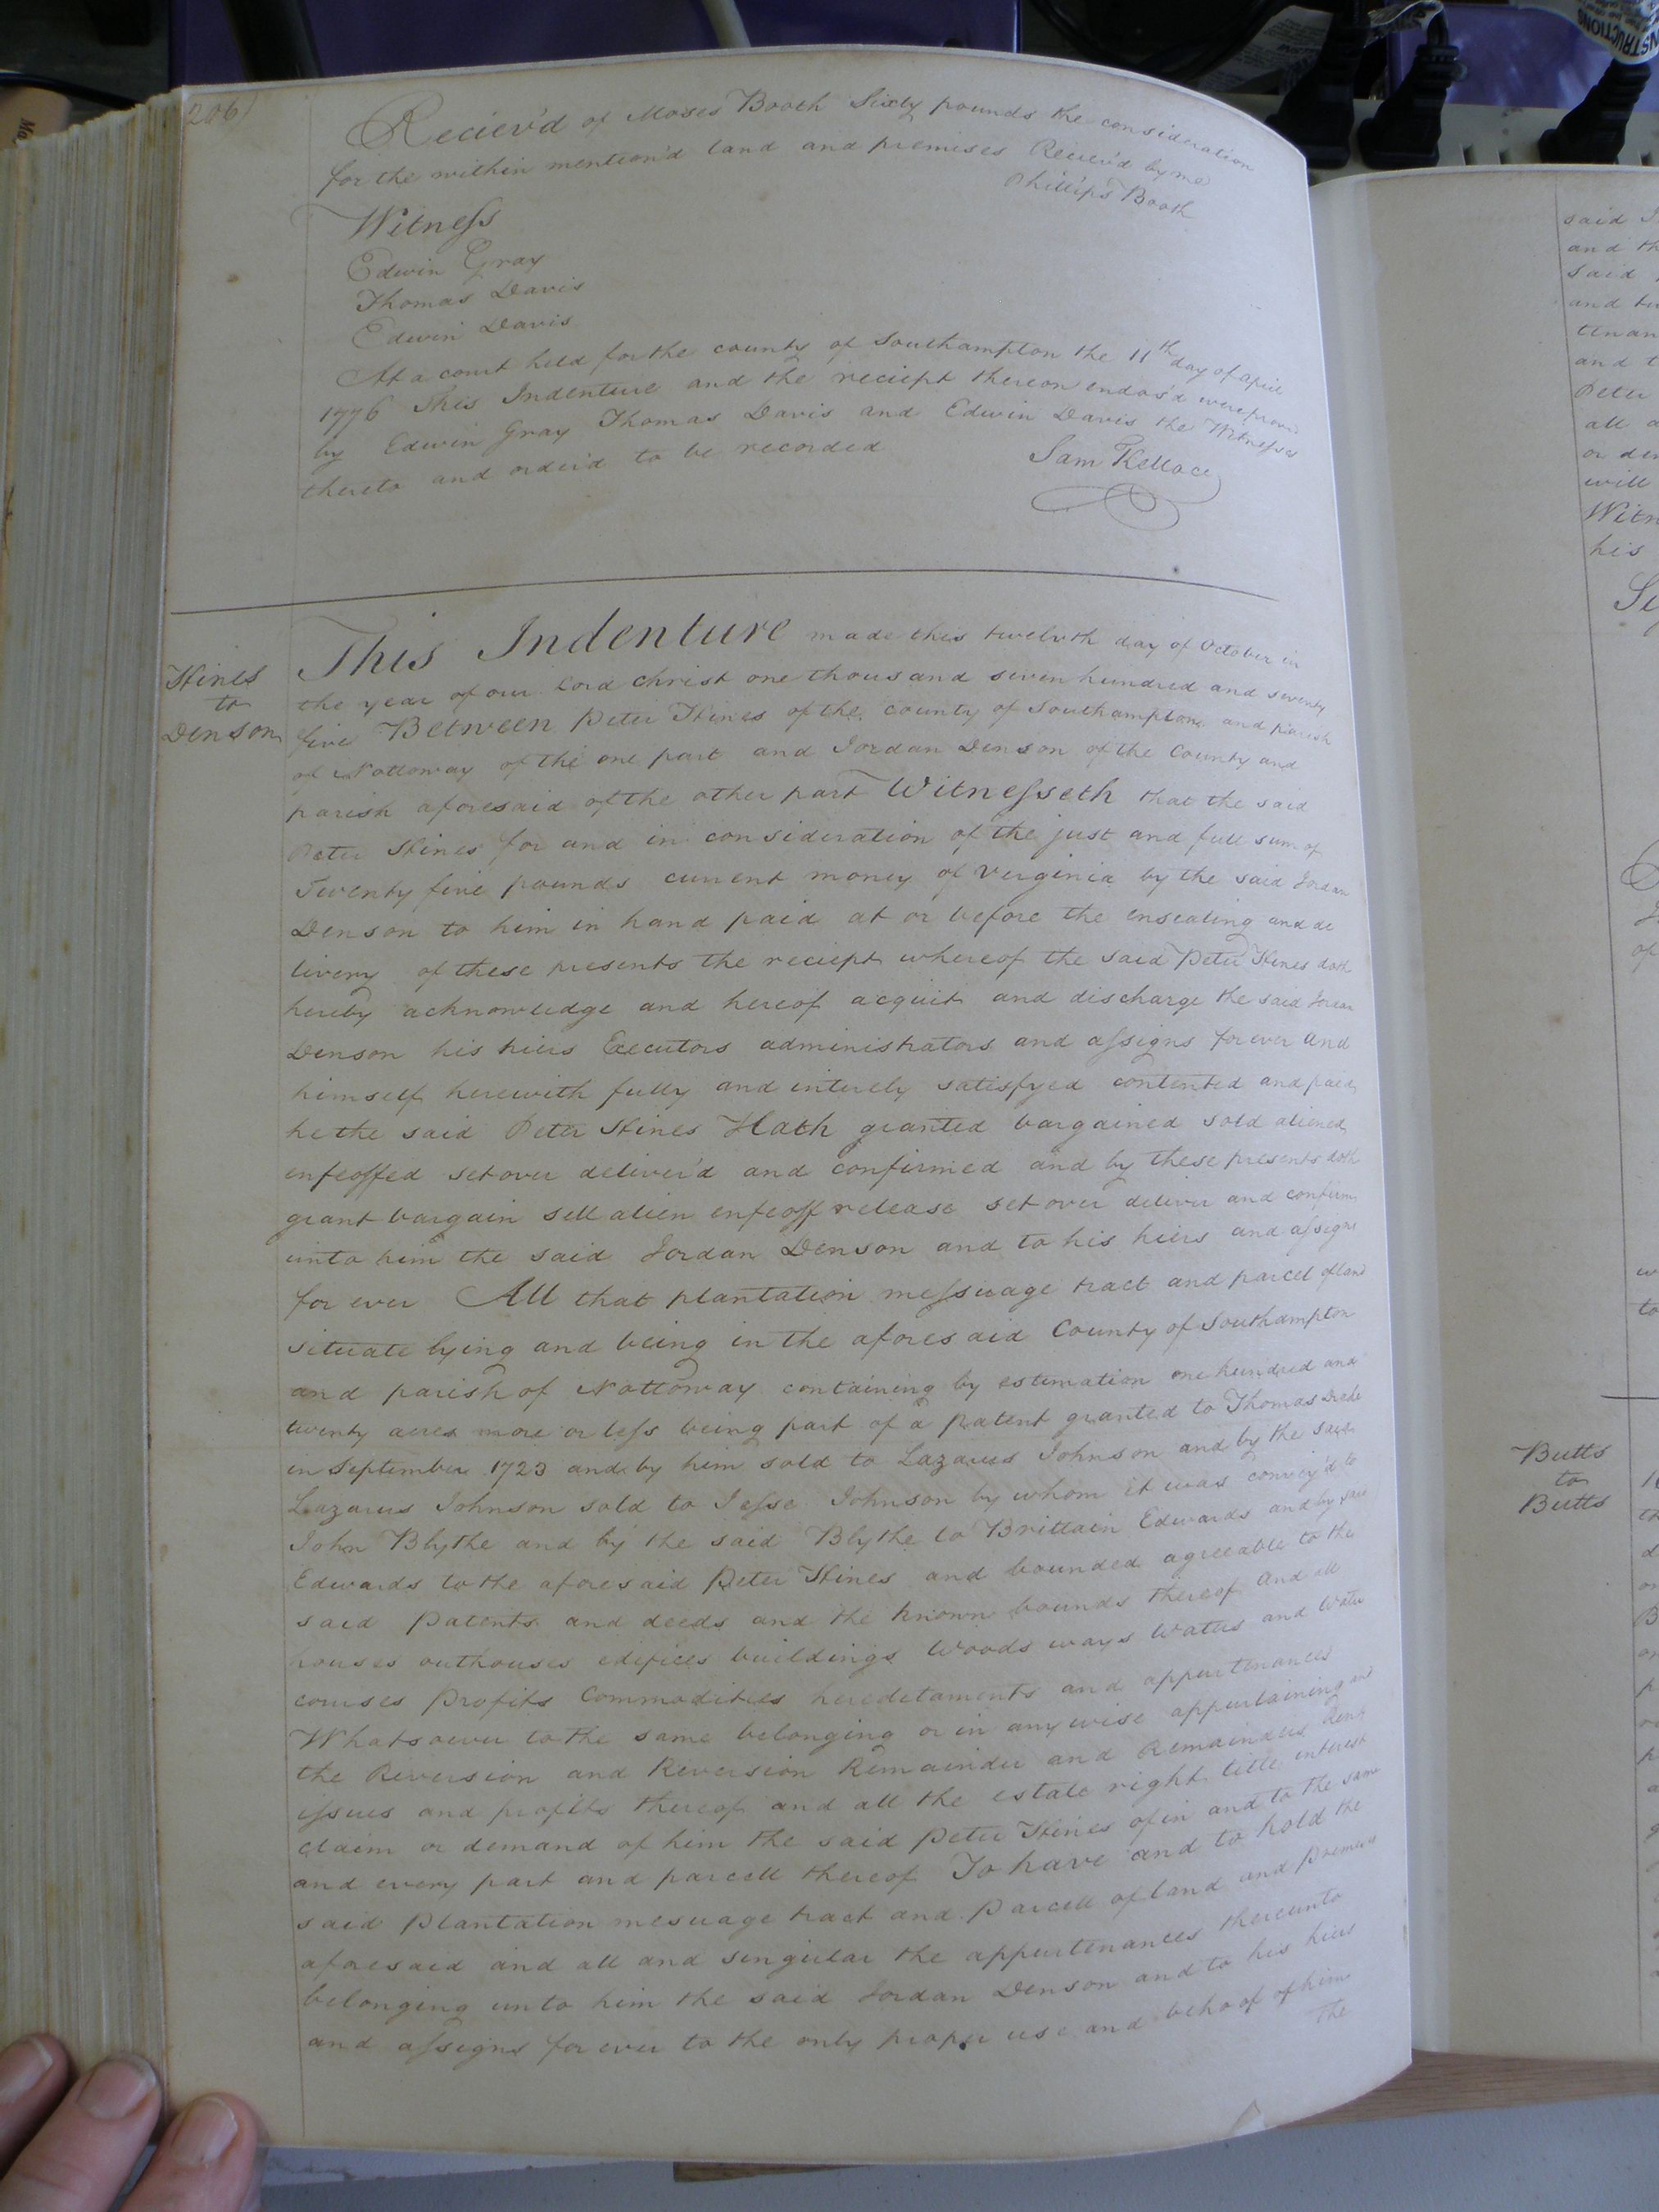 206)
Reciev'd of Moses Booth Sixty pounds the consideration
for the within mention'd land and premises Reciev'd by me
Phillips Booth
Witness
Edwin Gray
Thomas Davis
Edwin Davis
At a court held for the county of Southampton the 11th day of april
1776 This Indenture and the reciept thereon endos'd were proven
by Edwin Gray Thomas Davis and Edwin Davis the Witnesses
thereto and order'd to be recorded
Sam Kellocc
Hines
to
Denson
This Indenture made this twelvth day of October in
the year of our Lord Christ one thousand seven hundred and seventy
five Between Peter Hines of the county of Southampton and parish
of Nottoway of the one part and Jordan Denson of the County and
parish aforesaid of the other part Witnesseth that the said
Peter Hines for and in consideration of the just and full sum of
Twenty five pounds current money of Verginia by the said Jordan
Denson to him in hand paid at or before the ensealing and de
livery of these presents the reciept whereof the said Peter Hines doth
hereby acknowledge and hereof acquit and discharge the said Jordan
Denson his hiers Executors administrators and assigns forever and
himself herewith fully and intirely satisfyed contented and paid
he the said Peter Hines Hath granted bargained sold aliened
enfeoffed set over deliver'd and confirmed and by these presents doth
grant bargain sell alien enfeoff release set over deliver and confirm
unto him the said Jordan Denson and to his hiers and assigns
for ever All that plantation messuage tract and parcel of land
situate lying and being in the aforesaid County of Southampton
and parish of Nottoway containing by estimation one hundred and
twenty acres more or less being part of a patent granted to Thomas Drake
in September 1723 and by him sold to Lazarus Johnson and by the said
Lazarus Johnson sold to Jesse Johnson by whom it was convey'd to
John Blythe and by the said Blythe to Brittain Edwards and by said
Edwards to the aforesaid Peter Hines and bounded agreeable to the
said patents and deeds and the known bounds thereof and all
houses outhouses edifices buildings Woods ways Waters and Water
courses Profits Commodities heredetaments and appurtenances
Whatsoever to the same belonging or in any wise appurtaining and
the Reversion and Reversion Remainder and Remainders Rents
issues and profits thereof and all the estate right title interest
claim or demand of him the said Peter Hines of in and to the same
and every part and parcell thereof To have and to hold the
said Plantation mesuage tract and Parcell of land and Premises
aforesaid and all and singular the appurtenances thereunto
belonging unto him the said Jordan Denson and to his hiers
and assigns for ever to the only proper use and behoof of him
the
said
and th
said
and
and t
Peter
all
will
his
of
Butts
to
Butts